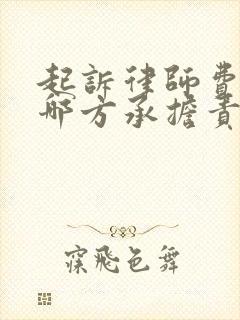 起訴律師費
哪方承擔責
寐飛色舞